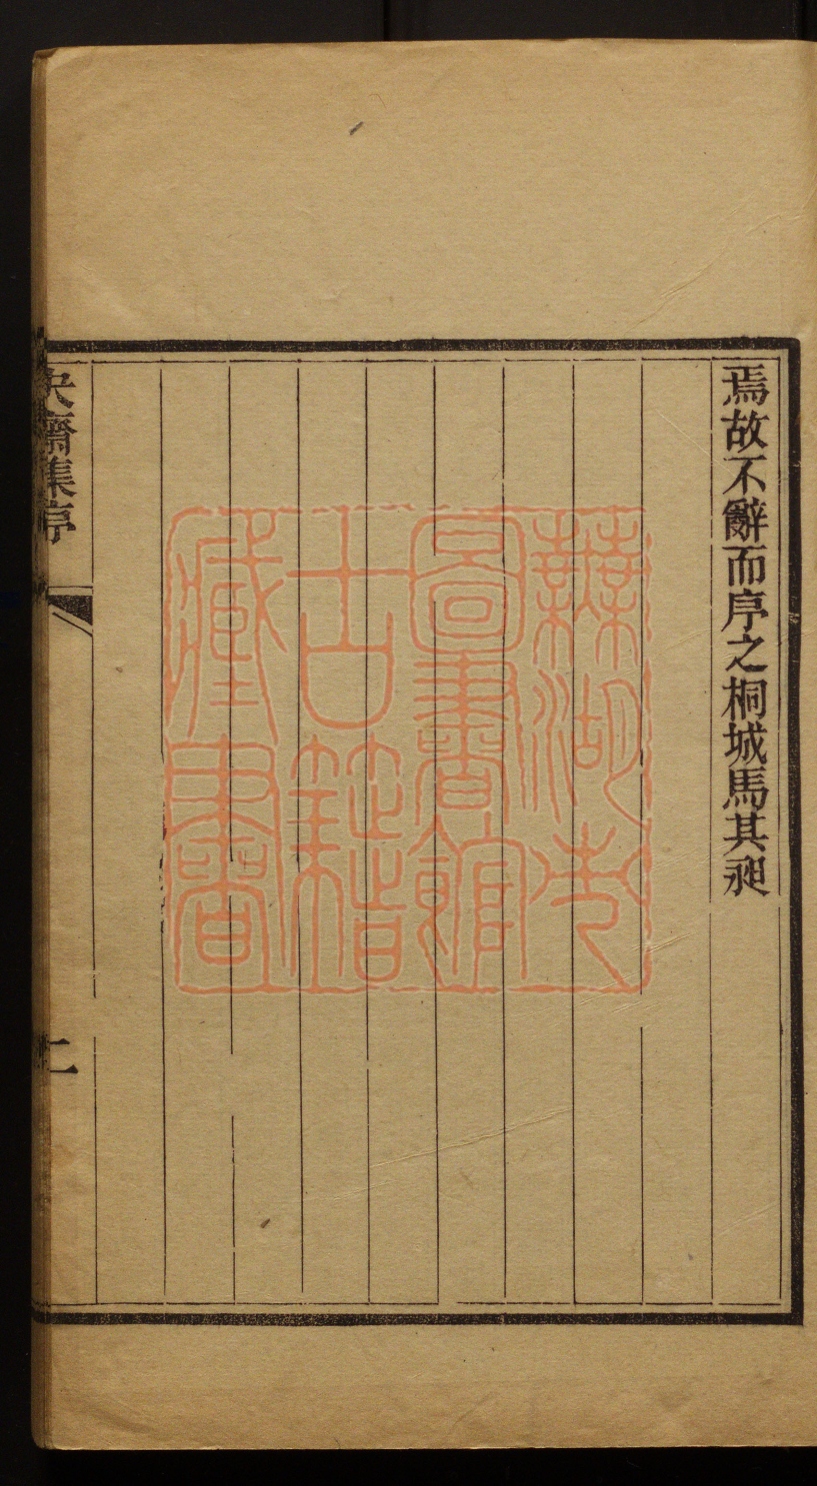 焉故不辭而序之桐城馬其昶
蕪湖市
圖書館
古籍
藏書
齋集序
二